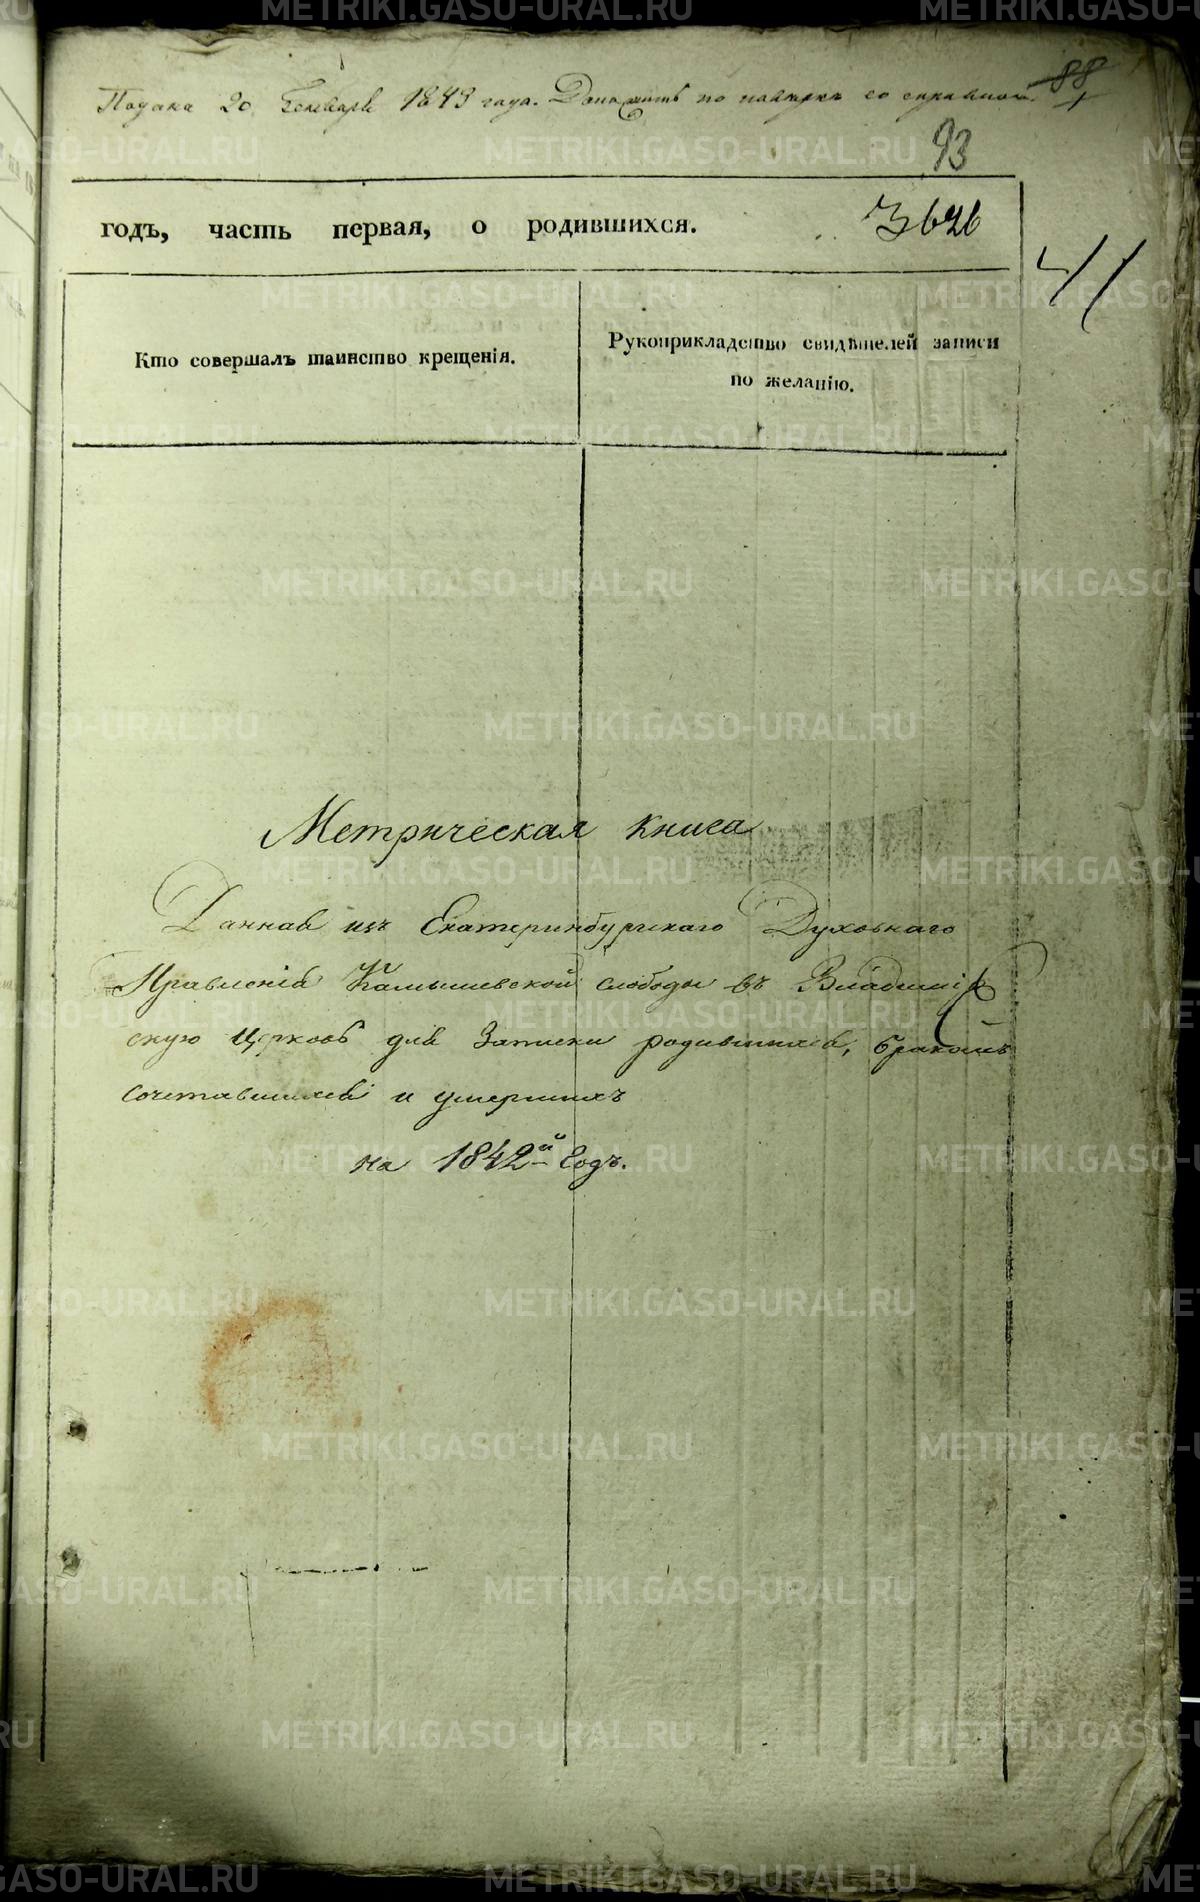 Подана 20 Генваря 1843 года. Доложить по повыткѣ со справкой.
88
93
годъ, часть первая, о родившихся.
3626
41
Кто совершалъ таинство крещенія.
Рукоприкладство свидѣтелей записи
по желанію.
Метрическая книга
Данная изъ Екатеринбургскаго Духовнаго
Правленія Камышевской слободы въ Владимір
скую церковь для Записки родившихся, бракомъ
сочетавшихся и умершихъ
на 1842й Годъ.
METRIKI.GASO-URAL.RU